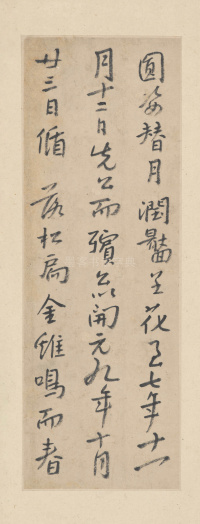 圓姿替月潤臉呈花已七年十一
月十二日先公而殯以開元九年十月
廿三日循 落松扃金雞鳴而春